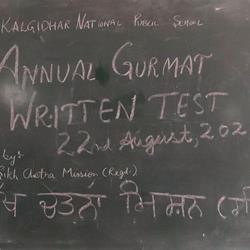 KALGIDHAR NATIONAL PUBLIC SCHOOL
ANNUAL GURMAT
WRITTEN TEST
22nd August, 202
by:
Sikh Chetna Mission (Regd.)
ਚੇਤਨਾ ਮਿਸ਼ਨ